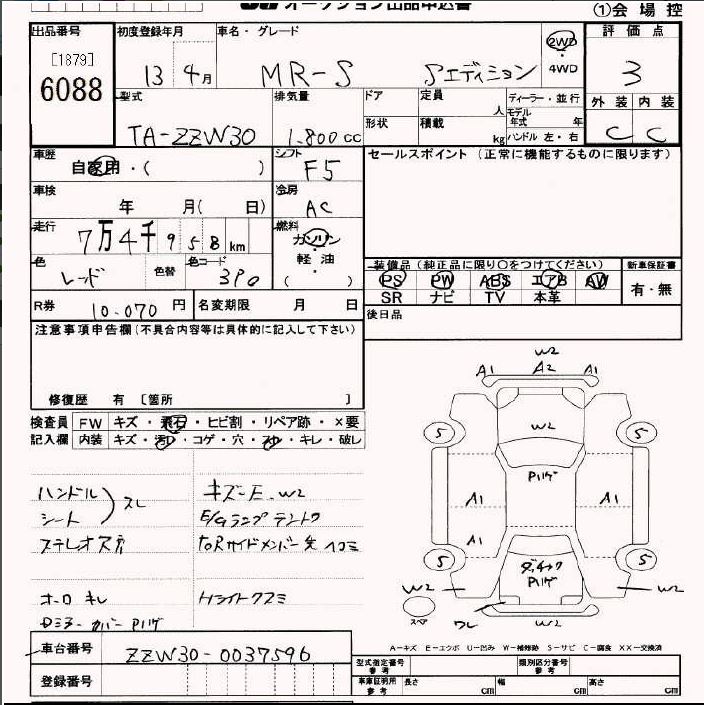 オークション出品申込書
①会場控
出品番号
[1879]
6088
初度登録年月
13 4月
車名・グレード
MR-S Sエディション
2WD
4WD
評価点
3
外装 内装
C C
型式
TA-ZZW30
排気量
1.800cc
ドア
形状
定員 人
積載 kg
ディーラー・並行
モデル年式 年
ハンドル 左・右
車歴
自家用・( )
シフト
F5
セールスポイント (正常に機能するものに限ります)
車検
年 月( 日)
冷房
AC
走行
7万4千958km
燃料
ガソリン
軽油
( )
色
レッド
色替
色コード
3P0
装備品(純正品に限り○をつけてください)
PS PW ABS エアB AW
SR ナビ TV 本革
新車保証書
有・無
R券
10.070円
名変期限 月 日
後日品
注意事項申告欄(不具合内容等は具体的に記入して下さい)
修復歴 有 [箇所 ]
検査員
記入欄
FW キズ・飛石・ヒビ割・リペア跡・×要
内装 キズ・汚れ・コゲ・穴・スレ・キレ・破し
ハンドル
シート
スレ
ステレオ穴
ホーロ キレ
キズ-E.W2
E/Gランプテントウ
toRサイドメンバー先 ヘコミ
Hライトクスミ
W2
A1 A2 A1
W2
Pハゲ
5 5
A1 A1
A1
5 5
Pハゲ
W2 W2
スペア
ワレ
W2
A-キズ E-エクボ U-凹み W-補修跡 S-サビ C-腐食 XX-交換済
車台番号
ZZW30-0037596
登録番号
型式指定番号
参考
類別区分番号
参考
車庫証明用
参考
長さ cm
幅 cm
高さ cm